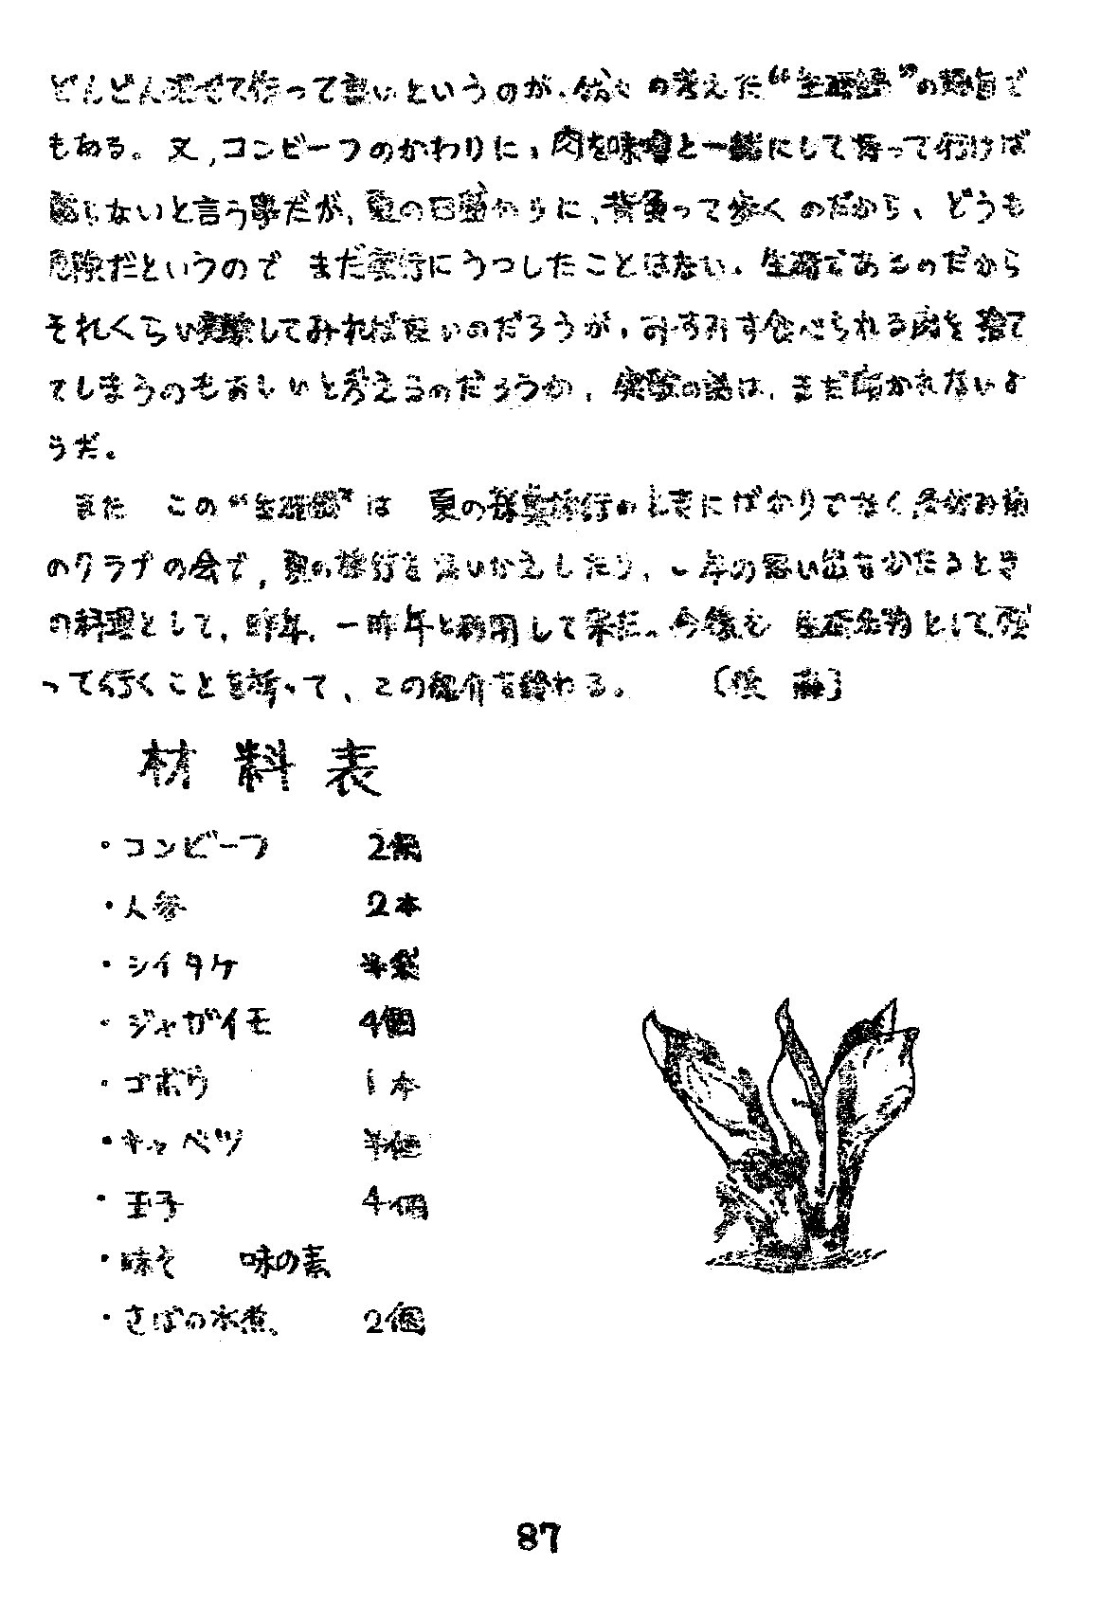 どんどん混ぜて作って良いというのが、鈴木の考えた“生研鍋”の趣旨で
もある。又,コンビーフのかわりに、肉を味噌と一緒にして持って行けば
腐らないと言う事だが、夏の日盛かりに、背負って歩くのだから、どうも
危険だというので まだ実行にうつしたことはない。生研であるのだから
それくらい実験してみれば良いのだろうが、みすみす食べられる肉を捨て
てしまうのもおしいと考えるのだろうか、実験の話は、まだ聞かれないよ
うだ。
また この“生研鍋”は 夏の採集旅行のときにばかりでなく冬休み前
のクラブの会で,夏の旅行を思いかえしたり、一年の思い出をかたるとき
の料理として、昨年、一昨年と利用して来た。今後も 生研名物として残
って行くことを祈って、この紹介を終わる。 〔後 藤〕
材料表
・コンビーフ 2個
・人参 2本
・シイタケ 半袋
・ジャガイモ 4個
・ゴボウ 1本
・キャベツ 半個
・玉子 4個
・味そ 味の素
・さばの水煮 2個
87